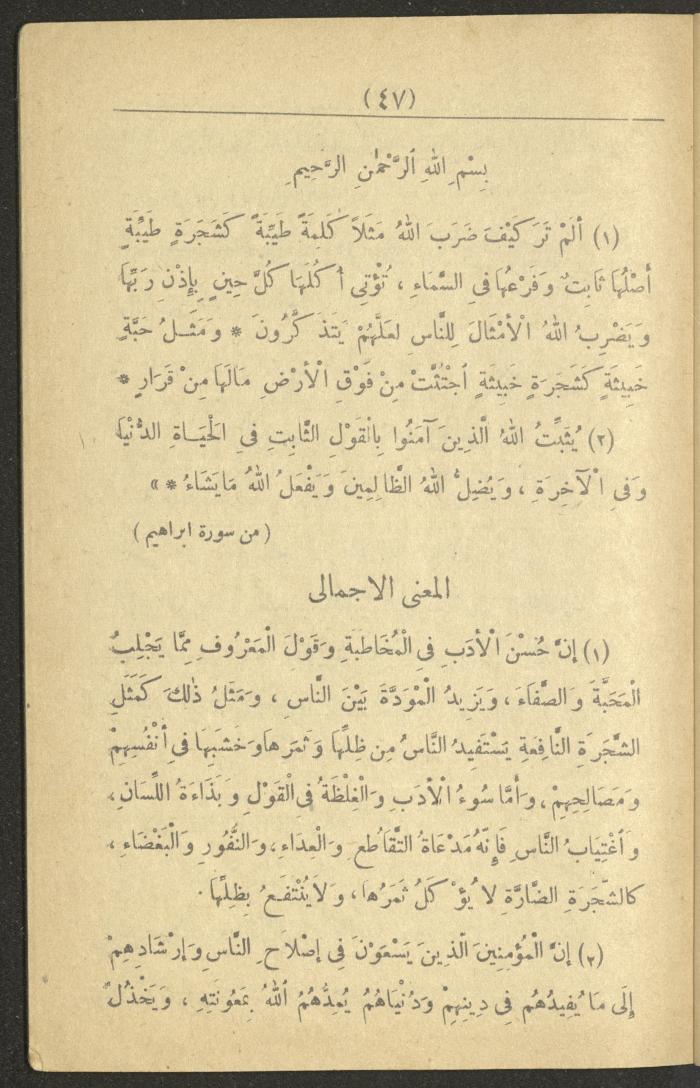 (٤٧)
بِسْمِ اللهِ الرَّحْمٰنِ الرَّحِيمِ
(١) أَلَمْ تَرَ كَيْفَ ضَرَبَ اللهُ مَثَلاً كَلِمَةً طَيِّبَةً كَشَجَرَةٍ طَيِّبَةٍ
أَصْلُهَا ثَابِتٌ وَفَرْعُهَا فِي السَّمَاءِ ، تُؤْتِي أُكُلَهَا كُلَّ حِينٍ بِإِذْنِ رَبِّهَا
وَيَضْرِبُ اللهُ الْأَمْثَالَ لِلنَّاسِ لَعَلَّهُمْ يَتَذَكَّرُونَ * وَمَثَلُ حَبَّةٍ
خَبِيثَةٍ كَشَجَرَةٍ خَبِيثَةٍ اجْتُثَّتْ مِنْ فَوْقِ الْأَرْضِ مَالَهَا مِنْ قَرَارٍ *
(٢) يُثَبِّتُ اللهُ الَّذِينَ آمَنُوا بِالْقَوْلِ الثَّابِتِ فِي الْحَيَاةِ الدُّنْيَا
وَفِي الْآخِرَةِ ، وَيُضِلُّ اللهُ الظَّالِمِينَ وَيَفْعَلُ اللهُ مَا يَشَاءُ * »
( من سورة ابراهيم )
المعنى الاجمالى
(١) إِنَّ حُسْنَ الْأَدَبِ فِي الْمُخَاطَبَةِ وَقَوْلَ الْمَعْرُوفِ مِمَّا يَجْلِبُ
الْمَحَبَّةَ وَالصَّفَاءَ ، وَيَزِيدُ الْمَوَدَّةَ بَيْنَ النَّاسِ ، وَمَثَلُ ذٰلِكَ كَمَثَلِ
الشَّجَرَةِ النَّافِعَةِ يَسْتَفِيدُ النَّاسُ مِن ظِلِّهَا وَثَمَرِهَا وَخَشَبِهَا فِي أَنْفُسِهِمْ
وَمَصَالِحِهِمْ ، وَأَمَّا سُوءُ الْأَدَبِ وَالْغِلْظَةُ فِي الْقَوْلِ وَبَذَاءَةُ اللِّسَانِ ،
وَاغْتِيَابُ النَّاسِ فَإِنَّهُ مَدْعَاةُ التَّقَاطُعِ وَالْعِدَاءِ ، وَالنُّفُورِ وَالْبَغْضَاءِ ،
كَالشَّجَرَةِ الضَّارَّةِ لَا يُؤْكَلُ ثَمَرُهَا ، وَلَا يُنْتَفَعُ بِظِلِّهَا .
(٢) إِنَّ الْمُؤْمِنِينَ الَّذِينَ يَسْعَوْنَ فِي إِصْلَاحِ النَّاسِ وَإِرْشَادِهِمْ
إِلَى مَا يُفِيدُهُم فِي دِينِهِمْ وَدُنْيَاهُمْ يُمِدُّهُمُ اللهُ بِمَعُونَتِهِ ، وَيَخْذُلُ